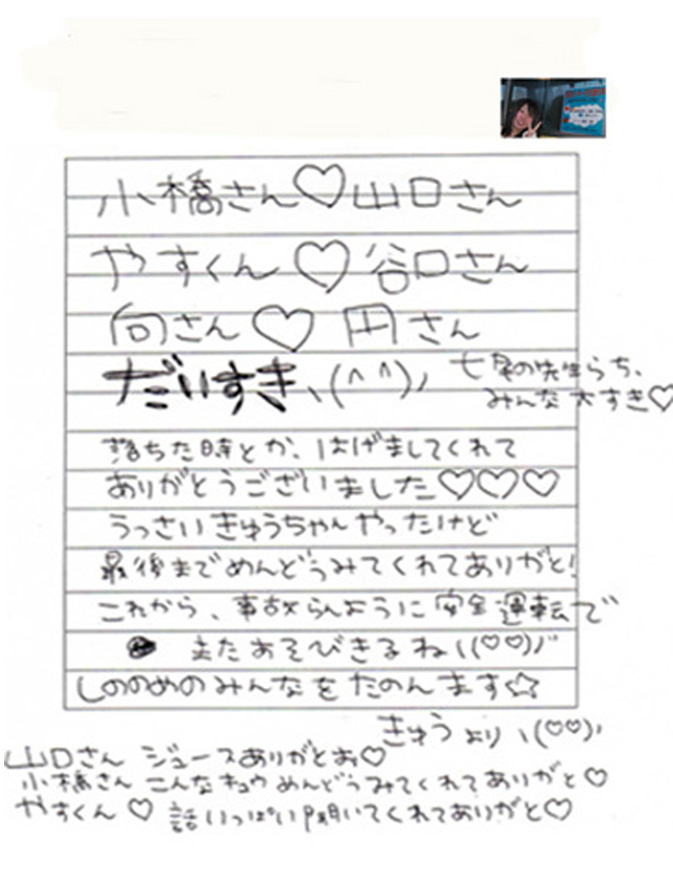 小橋さん♡山口さん
やすくん♡谷口さん
向さん♡円さん
だいすき、(^^)ノ
七尾の先生らち、
みんな大すき♡
落ちた時とか、はげましてくれて
ありがとうございました♡♡♡
うっさいきゅうちゃんやったけど
最後までめんどうみてくれてありがと!
これから、事故らんように安全運転で
またあそびきるね\(♡♡)/
しののめのみんなをたのんます☆
きゅうより\(♡♡)/
山口さん ジュースありがとお♡
小橋さん こんなキュウめんどうみてくれてありがと♡
やすくん♡ 話いっぱい聞いてくれてありがと♡